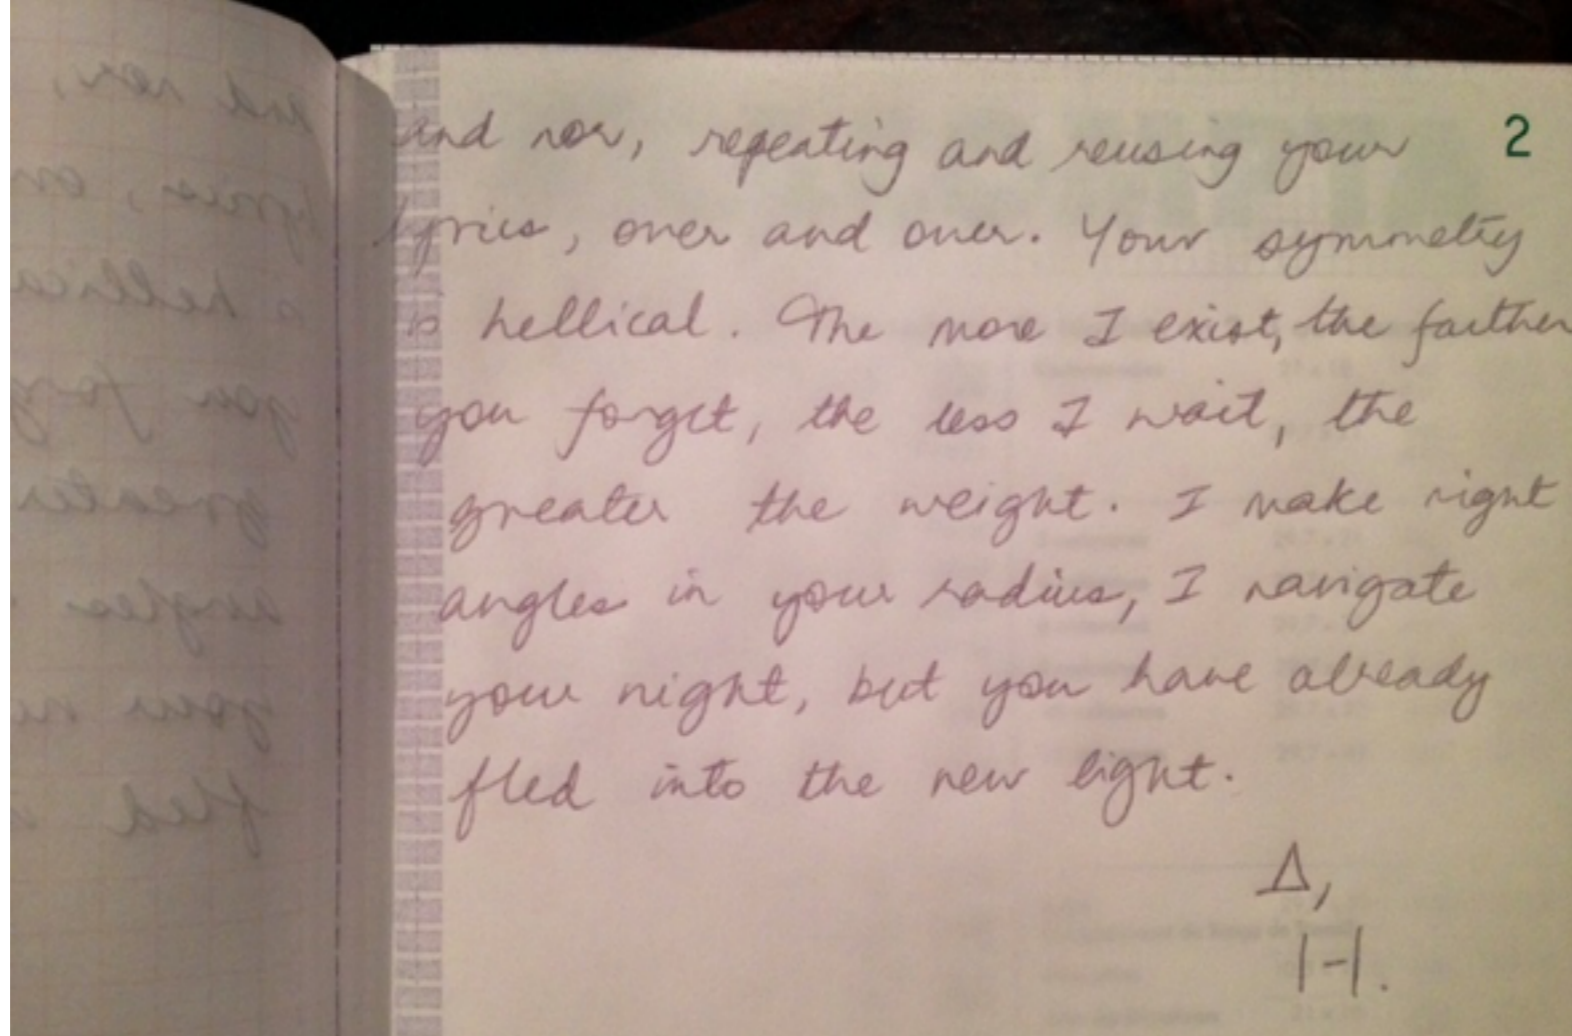 and now, repeating and reusing your 2
lyrics, over and over. Your symmetry
is hellical. The more I exist, the farther
you forget, the less I wait, the
greater the weight. I make right
angles in your radius, I navigate
your night, but you have already
fled into the new light.
Δ,
H.